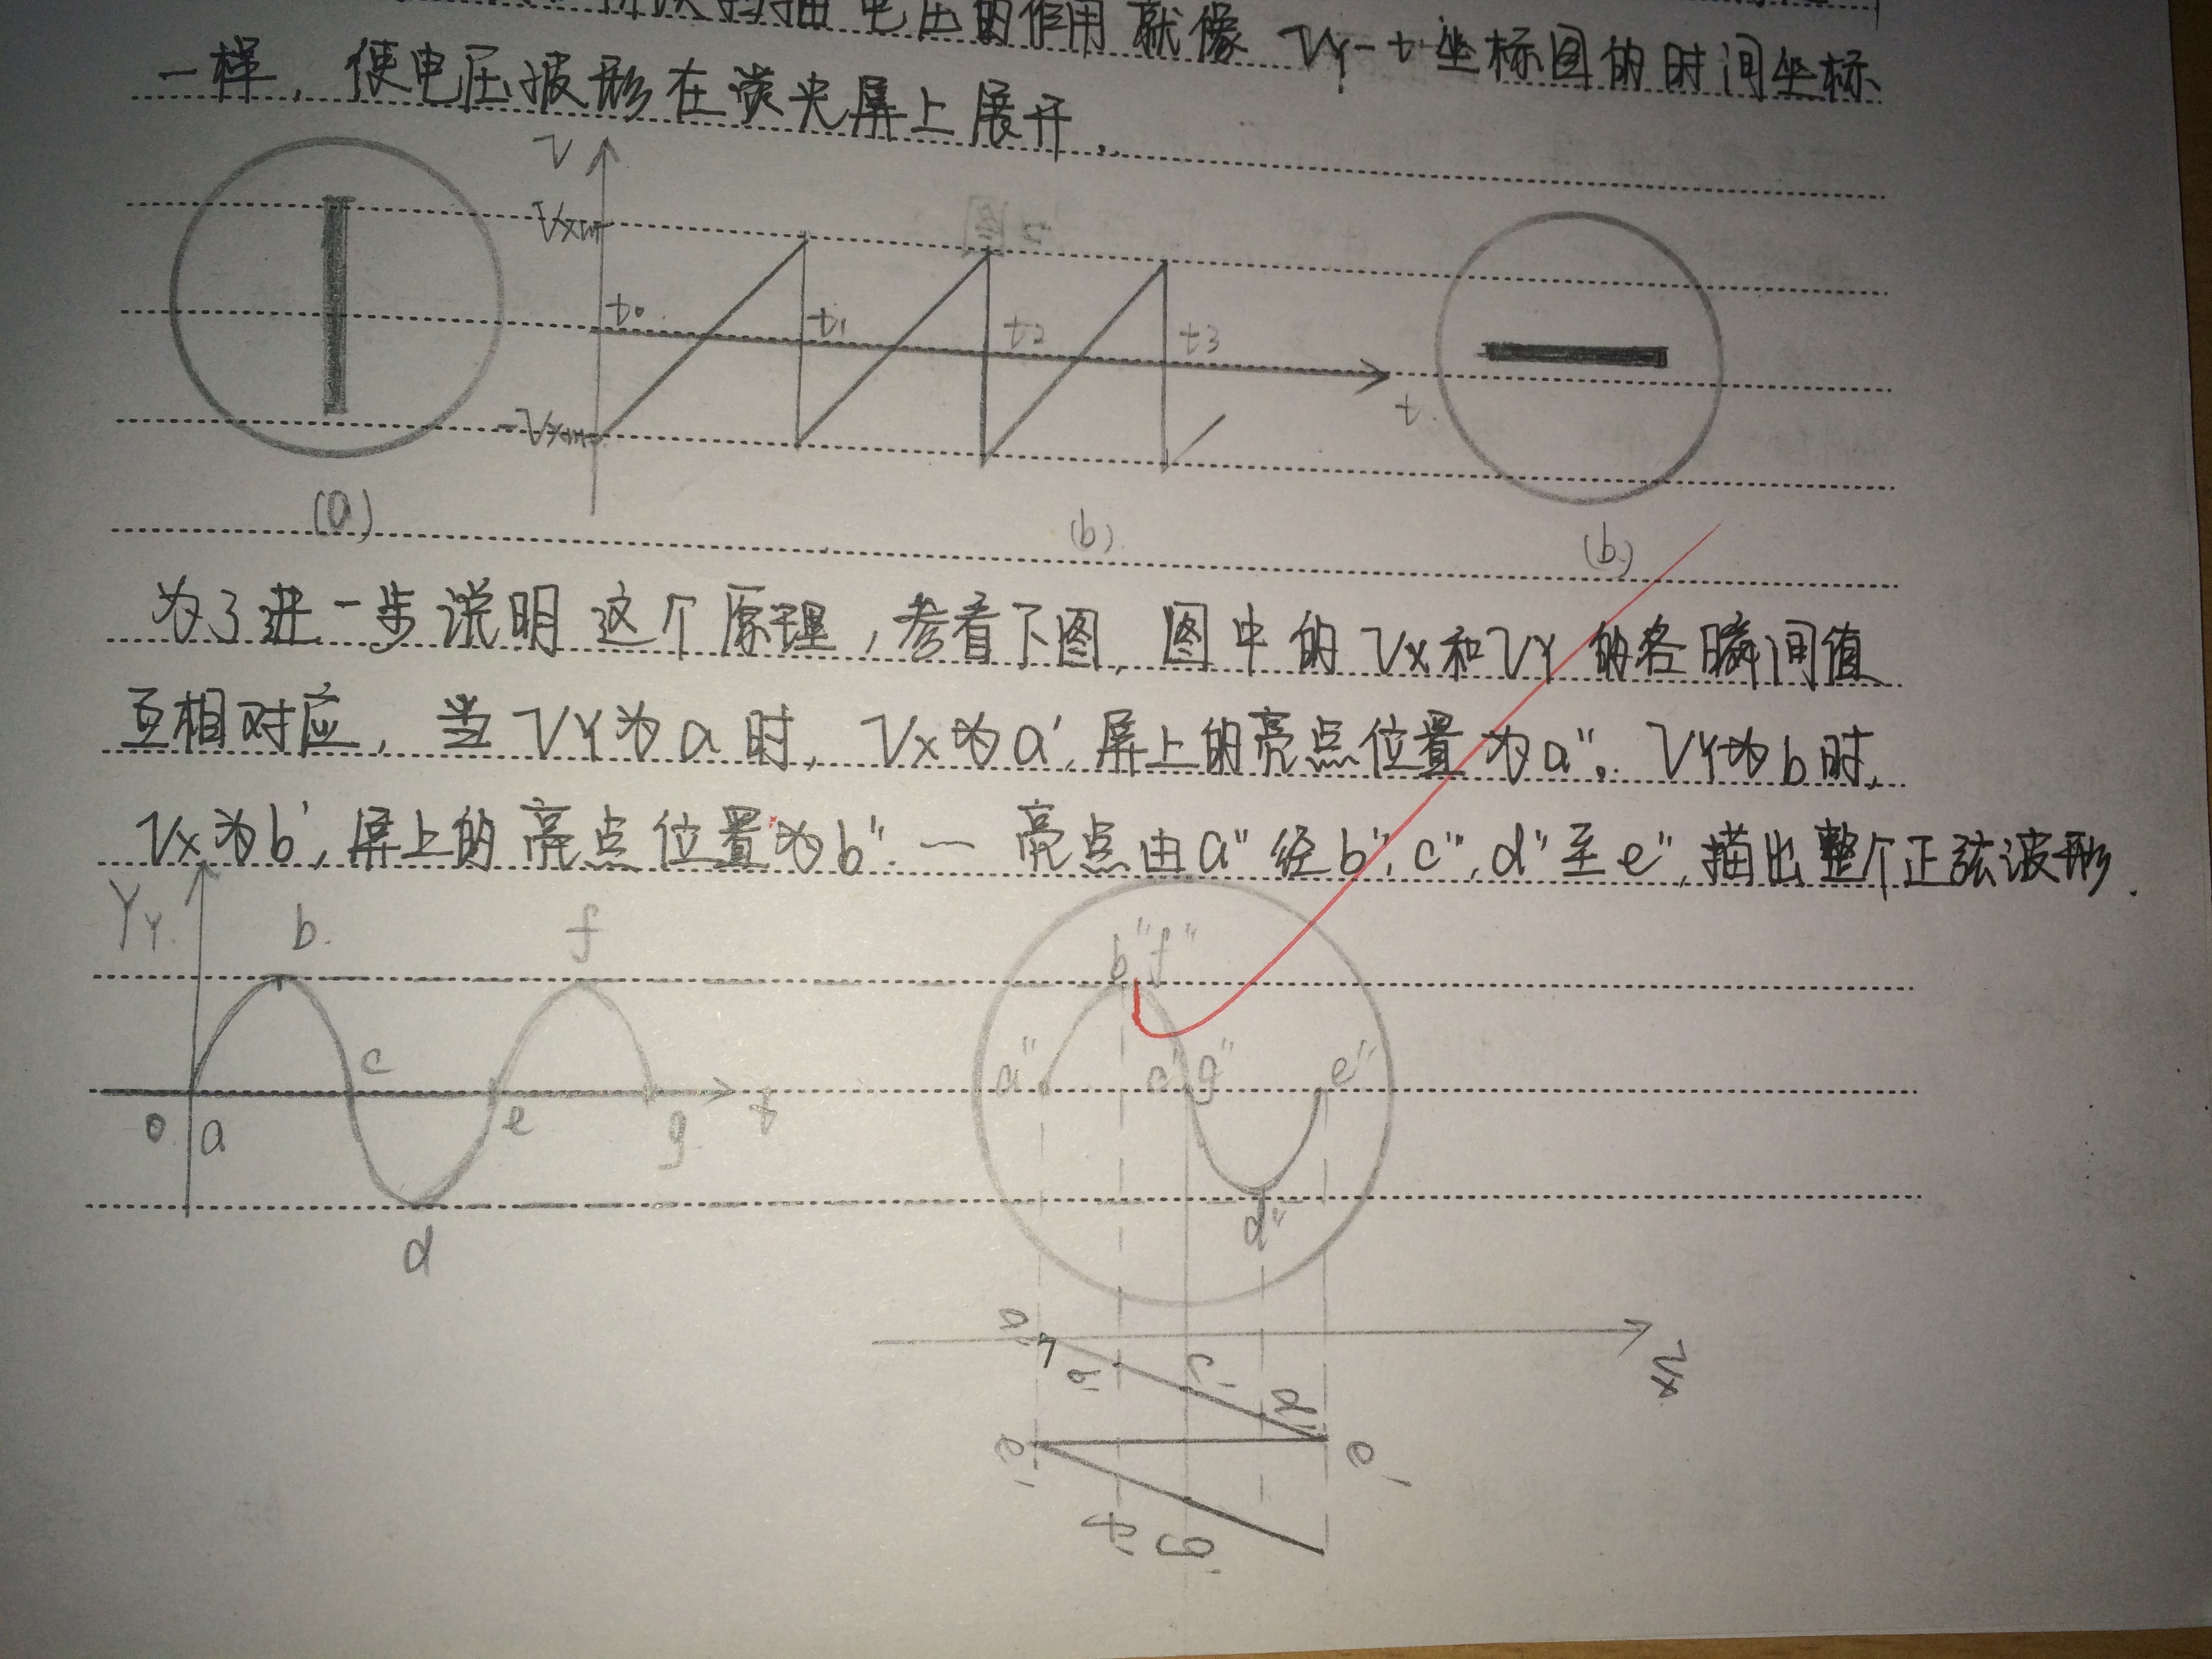 扫描电压的作用就像 VY-t 坐标图的时间坐标
一样，使电压波形在荧光屏上展开.
V
Vxm
t0 t1 t2 t3
-Vxm
t
(a) (b) (b)
为了进一步说明这个原理，参看下图，图中的Vx和VY的各瞬间值
互相对应，当VY为a时，Vx为a'，屏上的亮点位置为a"。VY为b时，
Vx为b'，屏上的亮点位置为b". — 亮点由a"经b"，c"，d"至e"，描出整个正弦波形.
YY b f b" f"
c a" c" g" e"
o a e g t
d d"
a' Vx
b' c' d'
e' e'
f' g'